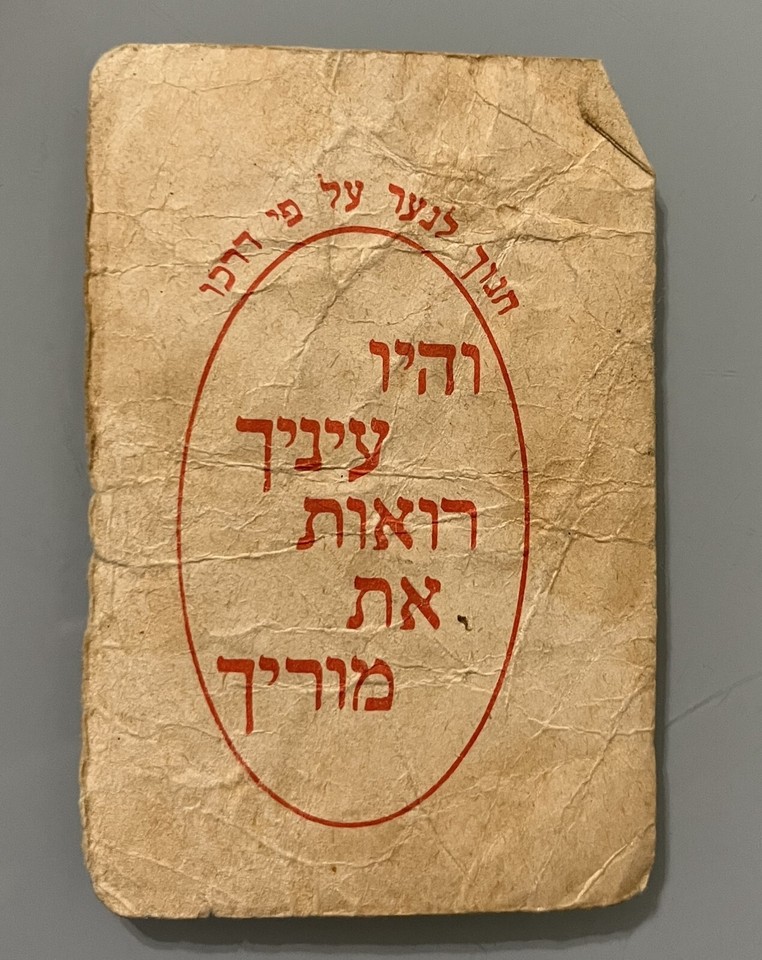 חנוך לנער על פי דרכו
והיו
עיניך
רואות
את
מוריך